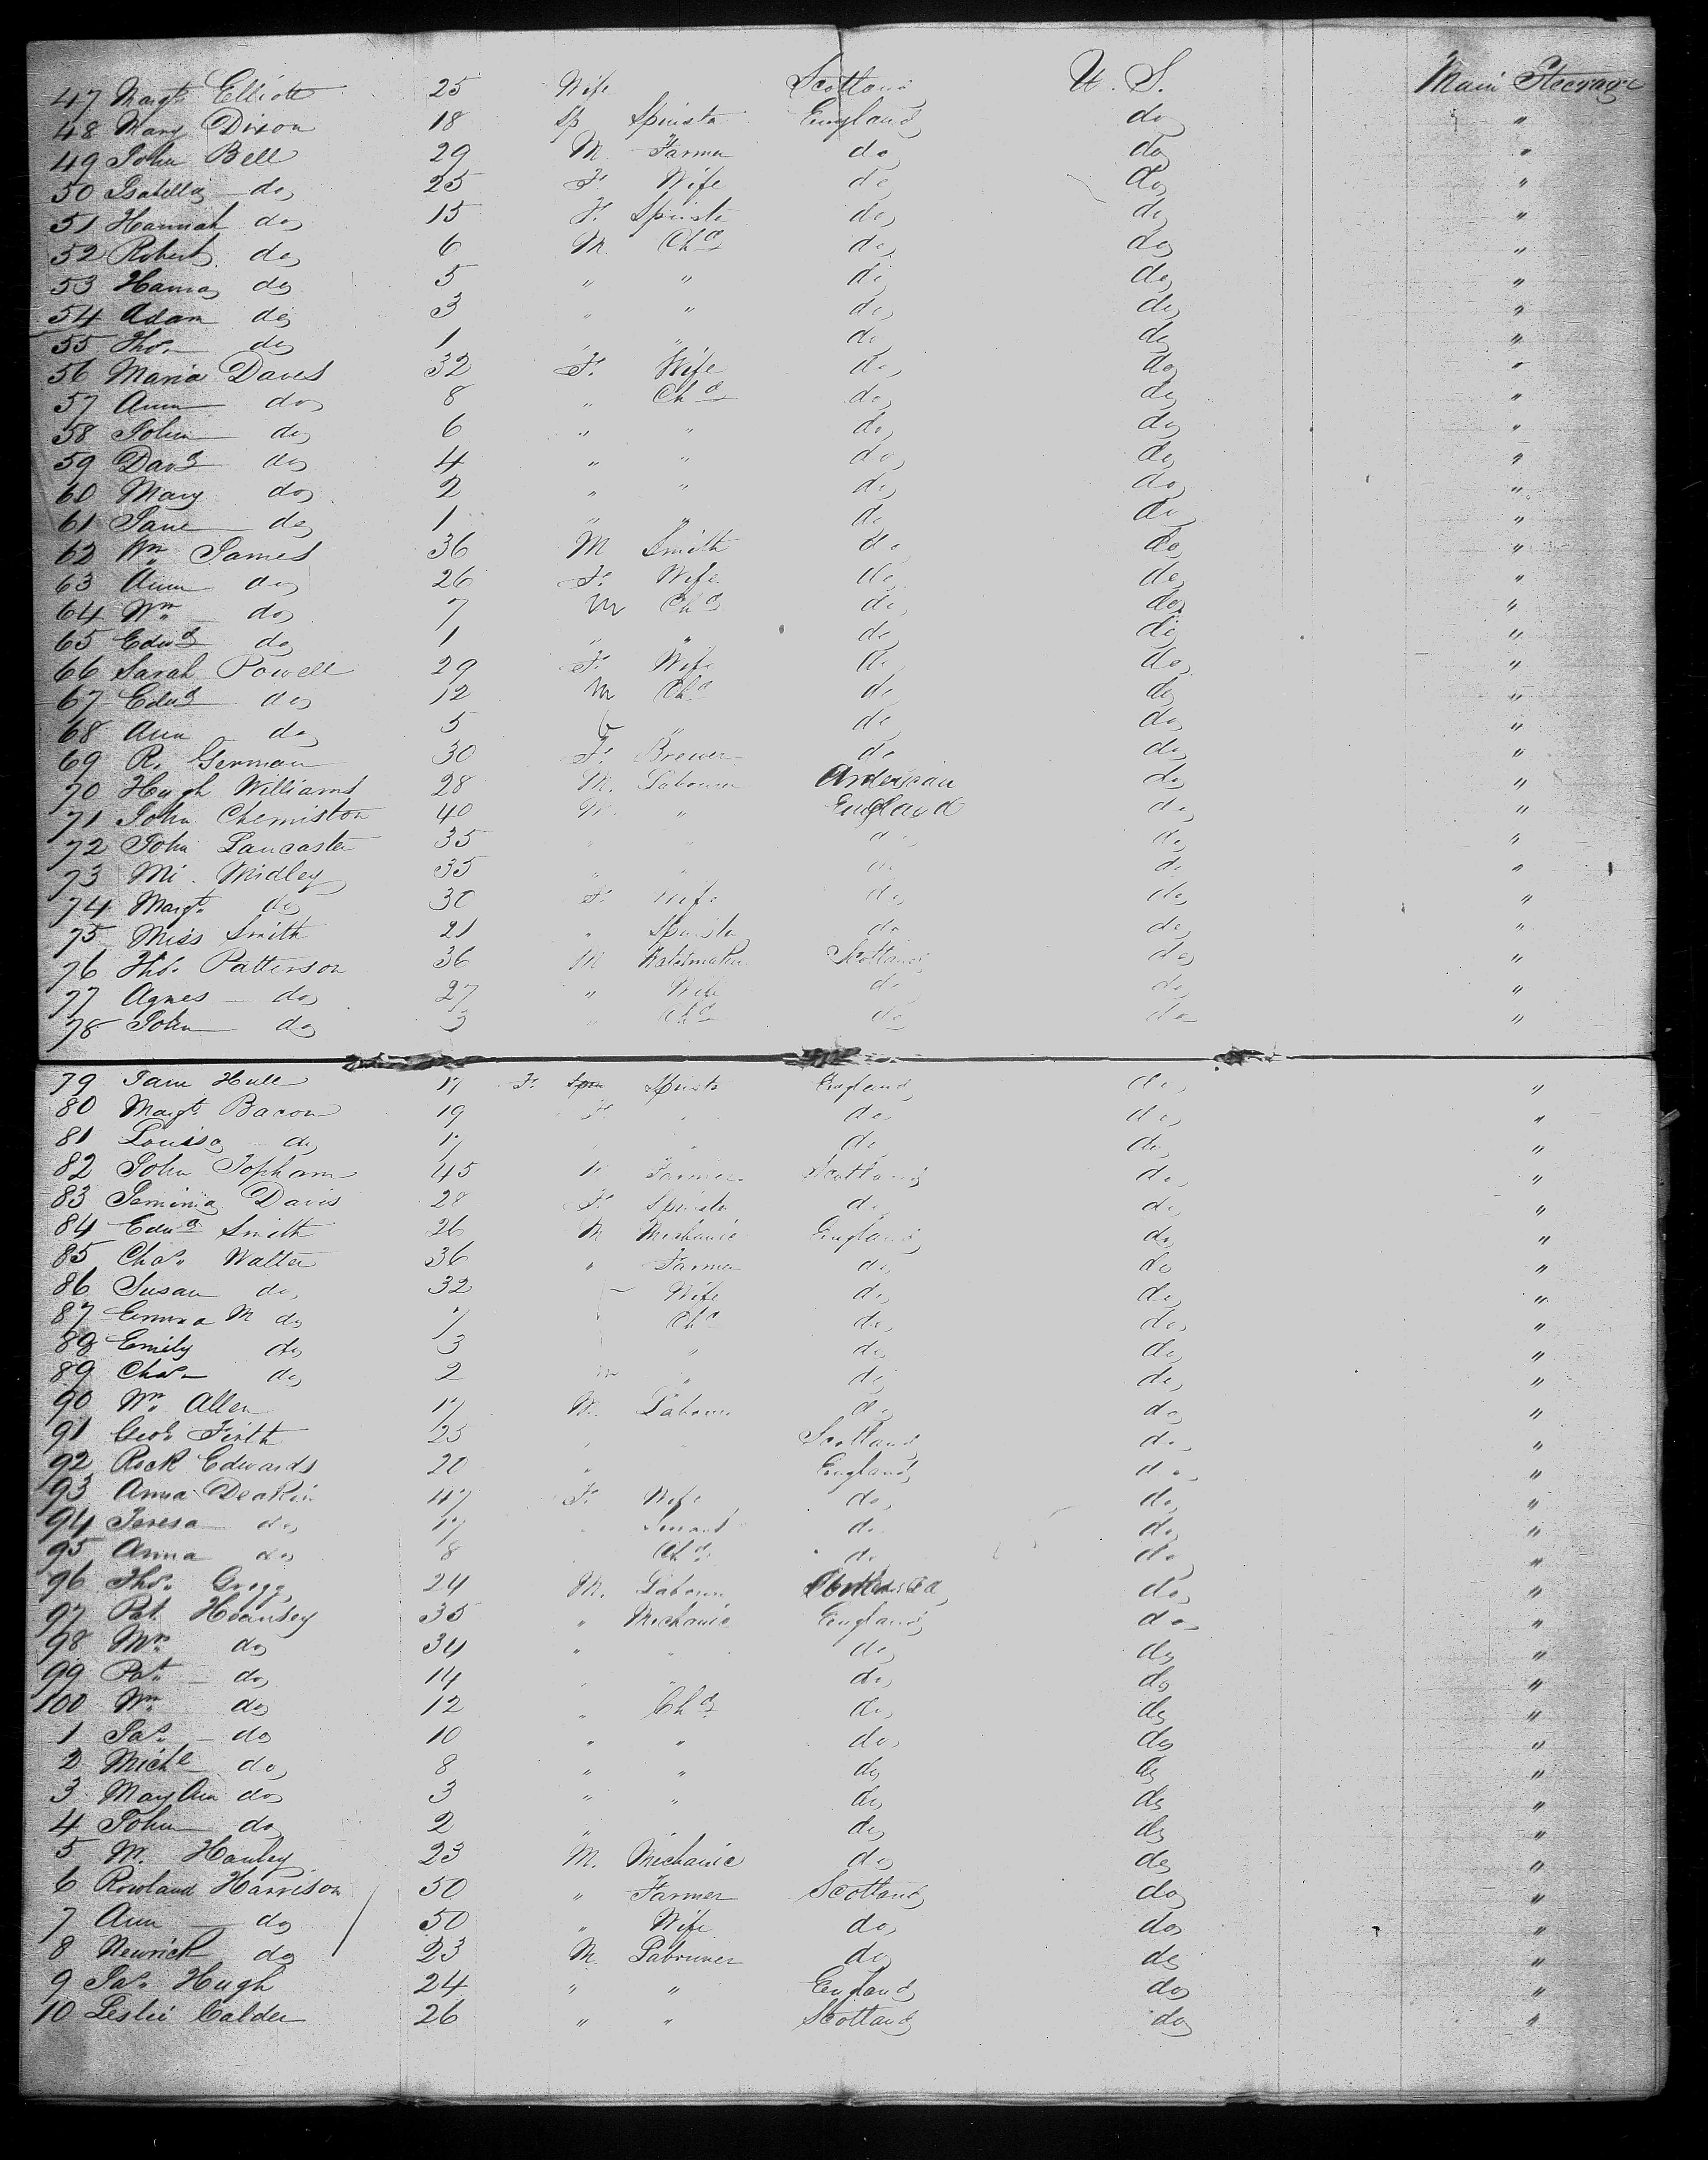 47 Margt. Elliott 25 Wife Scotland U. S. Main Steerage
48 Mary Dixon 18 Sp Spinstr England do "
49 John Bell 29 M. Farmer do do "
50 Isabella do 25 F. Wife do do "
51 Hannah do 15 F. Spinstr do do "
52 Robert do 6 M. Chd do do "
53 do 5 " " do do "
54 Adam do 3 " " do do "
55 Thos. do 1 " " do do "
56 Maria Daves 32 F. Wife do do "
57 Ann do 8 " Chd do do "
58 John do 6 " " do do "
59 Davd do 4 " " do do "
60 Mary do 2 " " do do "
61 Jane do 1 " " do do "
62 Wm. James 36 M Smith do do "
63 Ann do 26 F. Wife do do "
64 Wm. do 7 M Chd do do "
65 Edwd do 1 " " do do "
66 Sarah Powell 29 F. Wife do do "
67 Edwd do 12 M Chd do do "
68 Ann do 5 " do do "
69 R. German 30 F. Brewer do do "
70 Hugh Williams 28 M. Labourer do "
71 John Chemiston 40 M. " England do "
72 John Lancaster 35 " " do do "
73 Mi. Midley 35 " " do do "
74 Margt. do 30 F. Wife do do "
75 Miss Smith 21 " Spinstr do do "
76 Thos. Patterson 36 M Watchmaker Scotland do "
77 Agnes do 27 " Wife do do "
78 John do 3 " Chd do do "
79 Jane Hull 17 F. Spinstr England do "
80 Margt. Bacon 19 F. " do do "
81 Louisa do 17 " " do do "
82 John Topham 45 M Farmer Scotland do "
83 Jemima Davis 28 F. Spinstr do do "
84 Edwd Smith 26 M Mechanic England do "
85 Chas. Walter 36 " Farmer do do "
86 Susan do 32 Wife do do "
87 Emma M do 7 Chd do do "
88 Emily do 3 " do do "
89 Chas. do 2 M " do do "
90 Wm. Allen 17 M. Labourer do do "
91 Geo. Firth 23 " " Scotland do "
92 Rock Edwards 20 " England do "
93 Anna Deakin 47 F. Wife do do "
94 Teresa do 17 Servant do do "
95 Anna do 8 Chd. do do "
96 Thos. Gregg 24 M. Labourer do "
97 Pat. 35 " Mechanic England do "
98 do 34 " " do do "
99 Pat. do 14 " " do do "
100 Wm. do 12 " Chd do do "
1 Jas. do 10 " " do do "
2 Michl do 8 " " do do "
3 Mary Ann do 3 " " do do "
4 John do 2 " " do do "
5 M. Hanley 23 M. Mechanic do do "
6 Rowland Harrison 50 " Farmer Scotland do "
7 Ann do 50 " Wife do do "
8 Newrick do 23 M. Labourer do do "
9 Jas. Hugh 24 " " England do "
10 Leslie Calder 26 " " Scotland do "